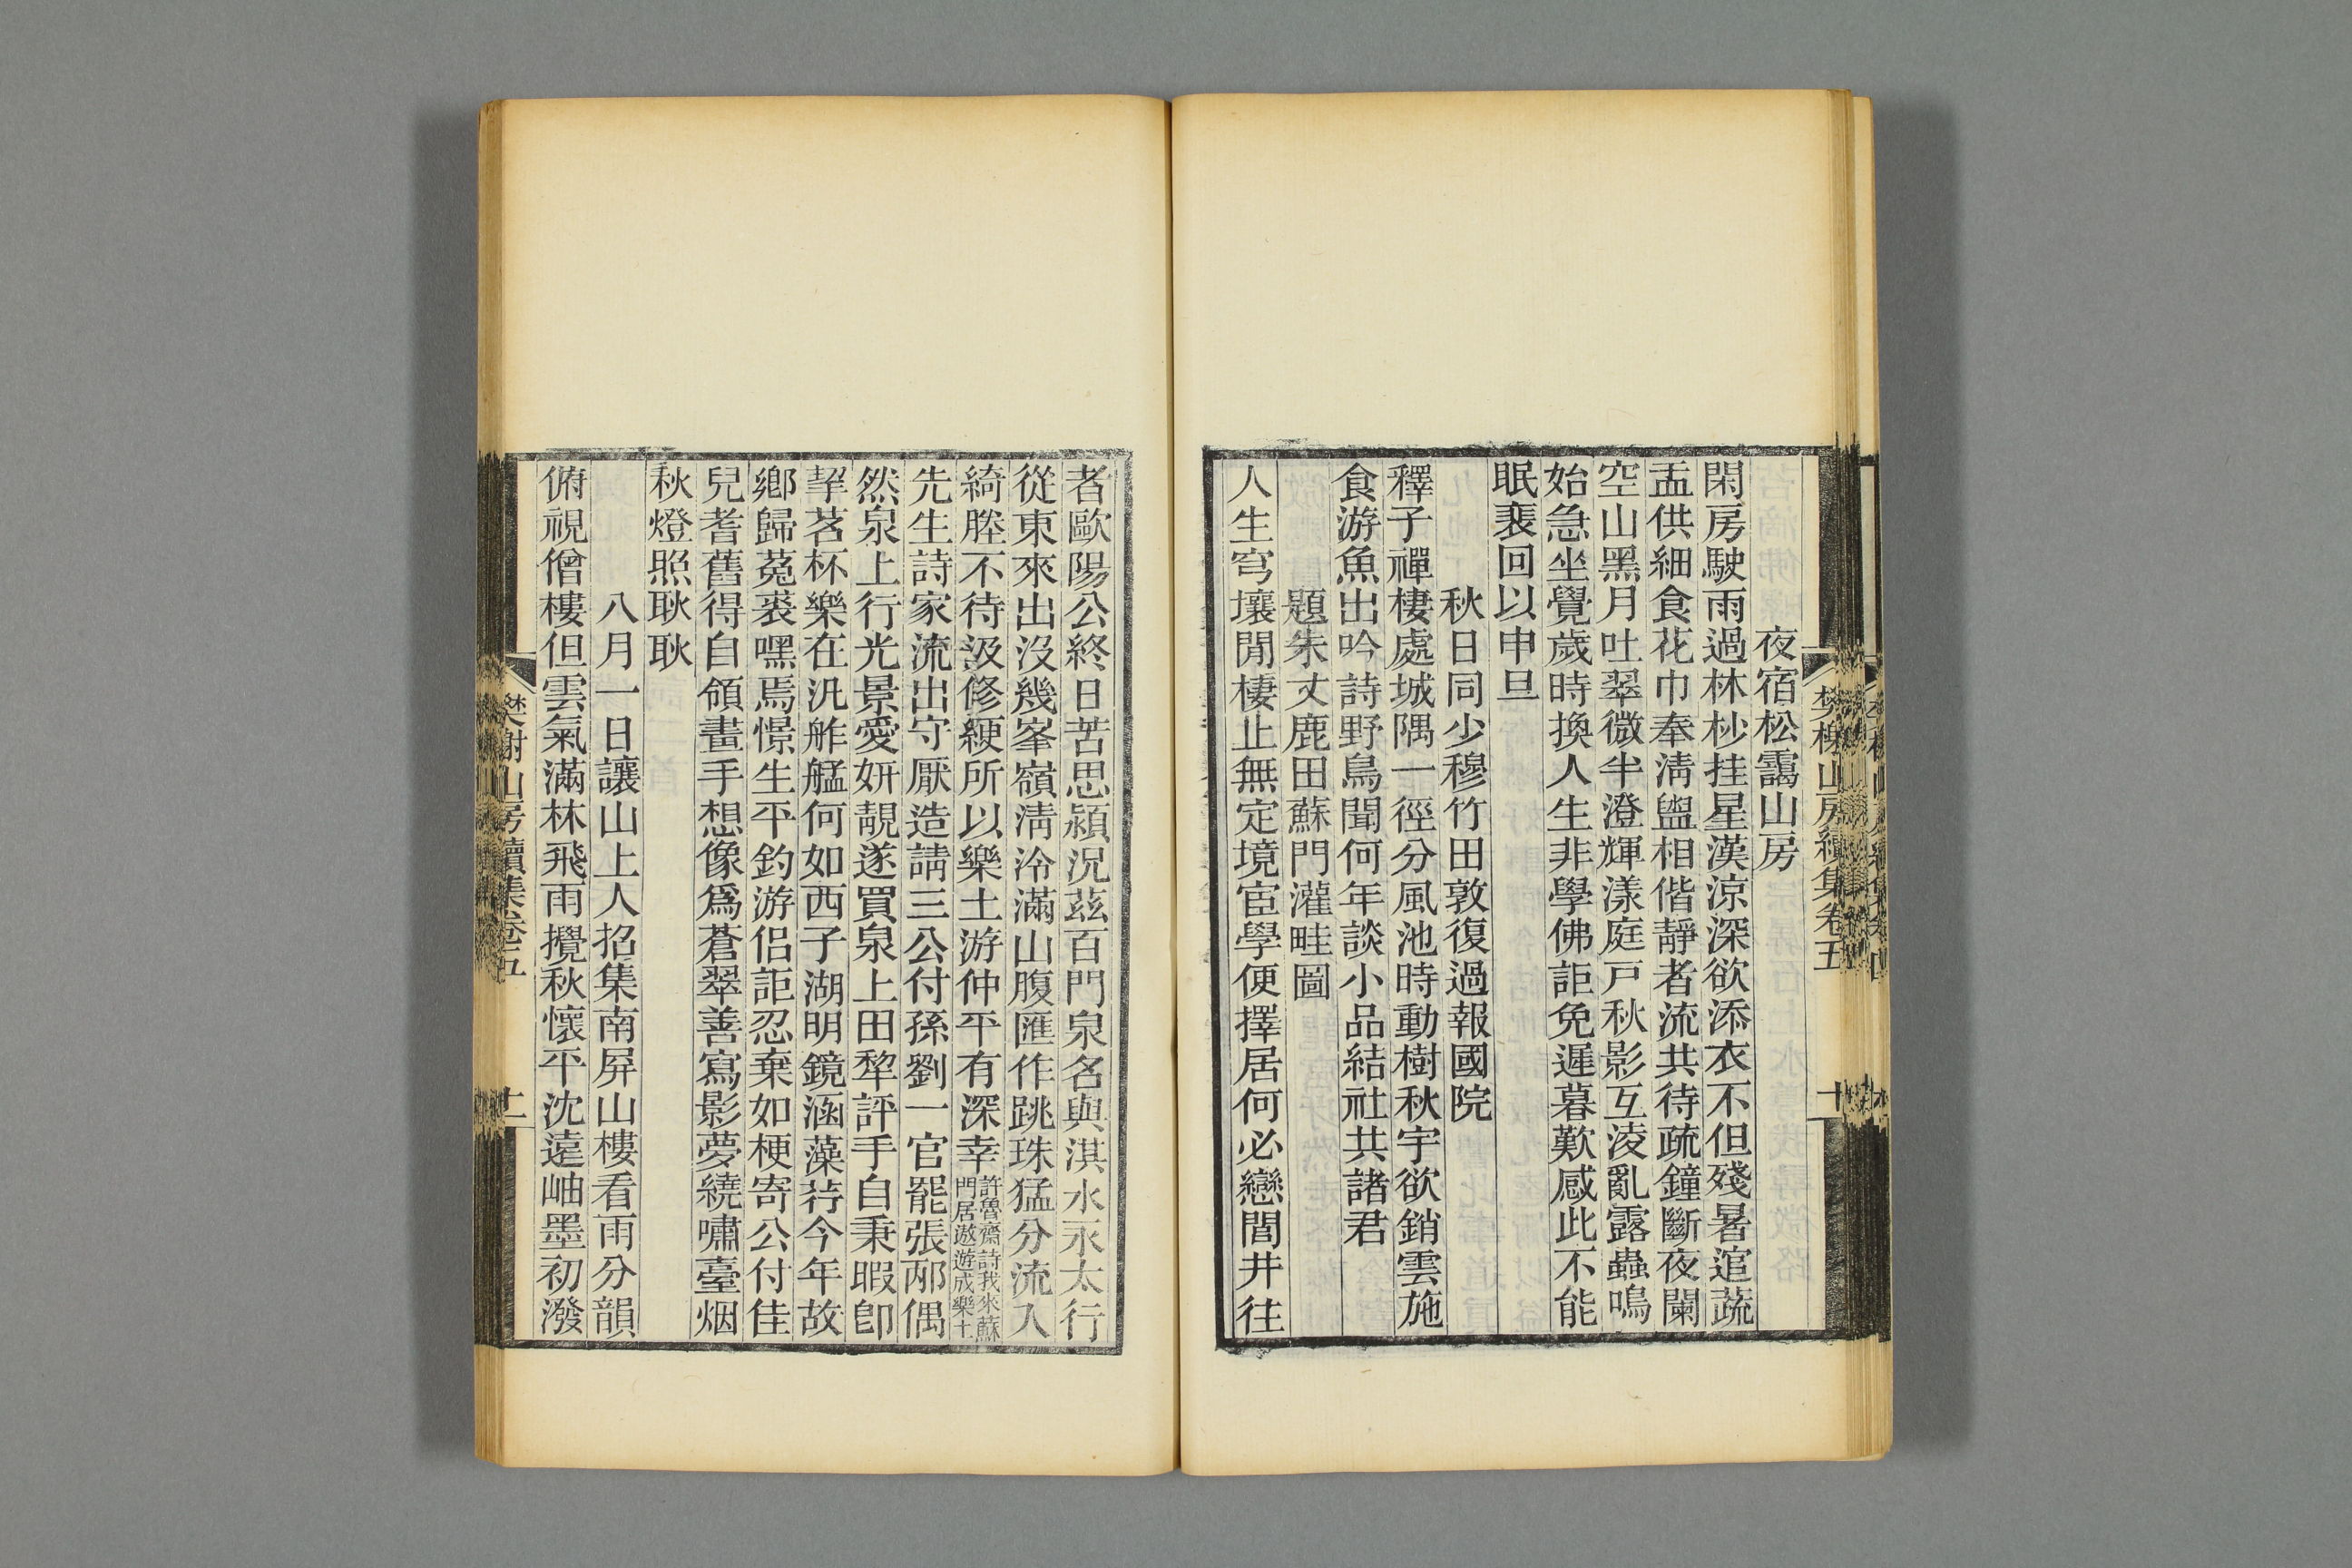 樊榭山房續集卷五
十
夜宿松靄山房
閑房駛雨過林杪挂星漢涼深欲添衣不但殘暑逭蔬
盂供細食花巾奉淸盥相偕靜者流共待疏鐘斷夜闌
空山黑月吐翠微半澄輝漾庭戸秋影互淩亂露蟲鳴
始急坐覺歲時換人生非學佛詎免遲暮歎感此不能
眠裴回以申旦
秋日同少穆竹田敦復過報國院
釋子禪棲處城隅一徑分風池時動樹秋宇欲銷雲施
食游魚出吟詩野鳥聞何年談小品結社共諸君
題朱丈鹿田蘇門灌畦圖
人生穹壤閒棲止無定境宦學便擇居何必戀閭井往
者歐陽公終日苦思潁況茲百門泉名與淇水永太行
從東來出沒幾峯嶺淸泠滿山腹匯作跳珠猛分流入
綺塍不待汲修綆所以樂土游仲平有深幸許魯齋詩我來蘇
門居遨遊成樂土
先生詩家流出守厭造請三公付孫劉一官罷張邴偶
然泉上行光景愛妍靚遂買泉上田犂評手自秉暇卽
挈茗杯樂在汎舴艋何如西子湖明鏡涵藻荇今年故
鄉歸菟裘嘿焉憬生平釣游侶詎忍棄如梗寄公付佳
兒耆舊得自領畫手想像爲蒼翠善寫影夢繞嘯臺烟
秋燈照耿耿
八月一日讓山上人招集南屛山樓看雨分韻
俯視僧樓但雲氣滿林飛雨攪秋懷平沈遠岫墨初潑
樊榭山房續集卷五
十一